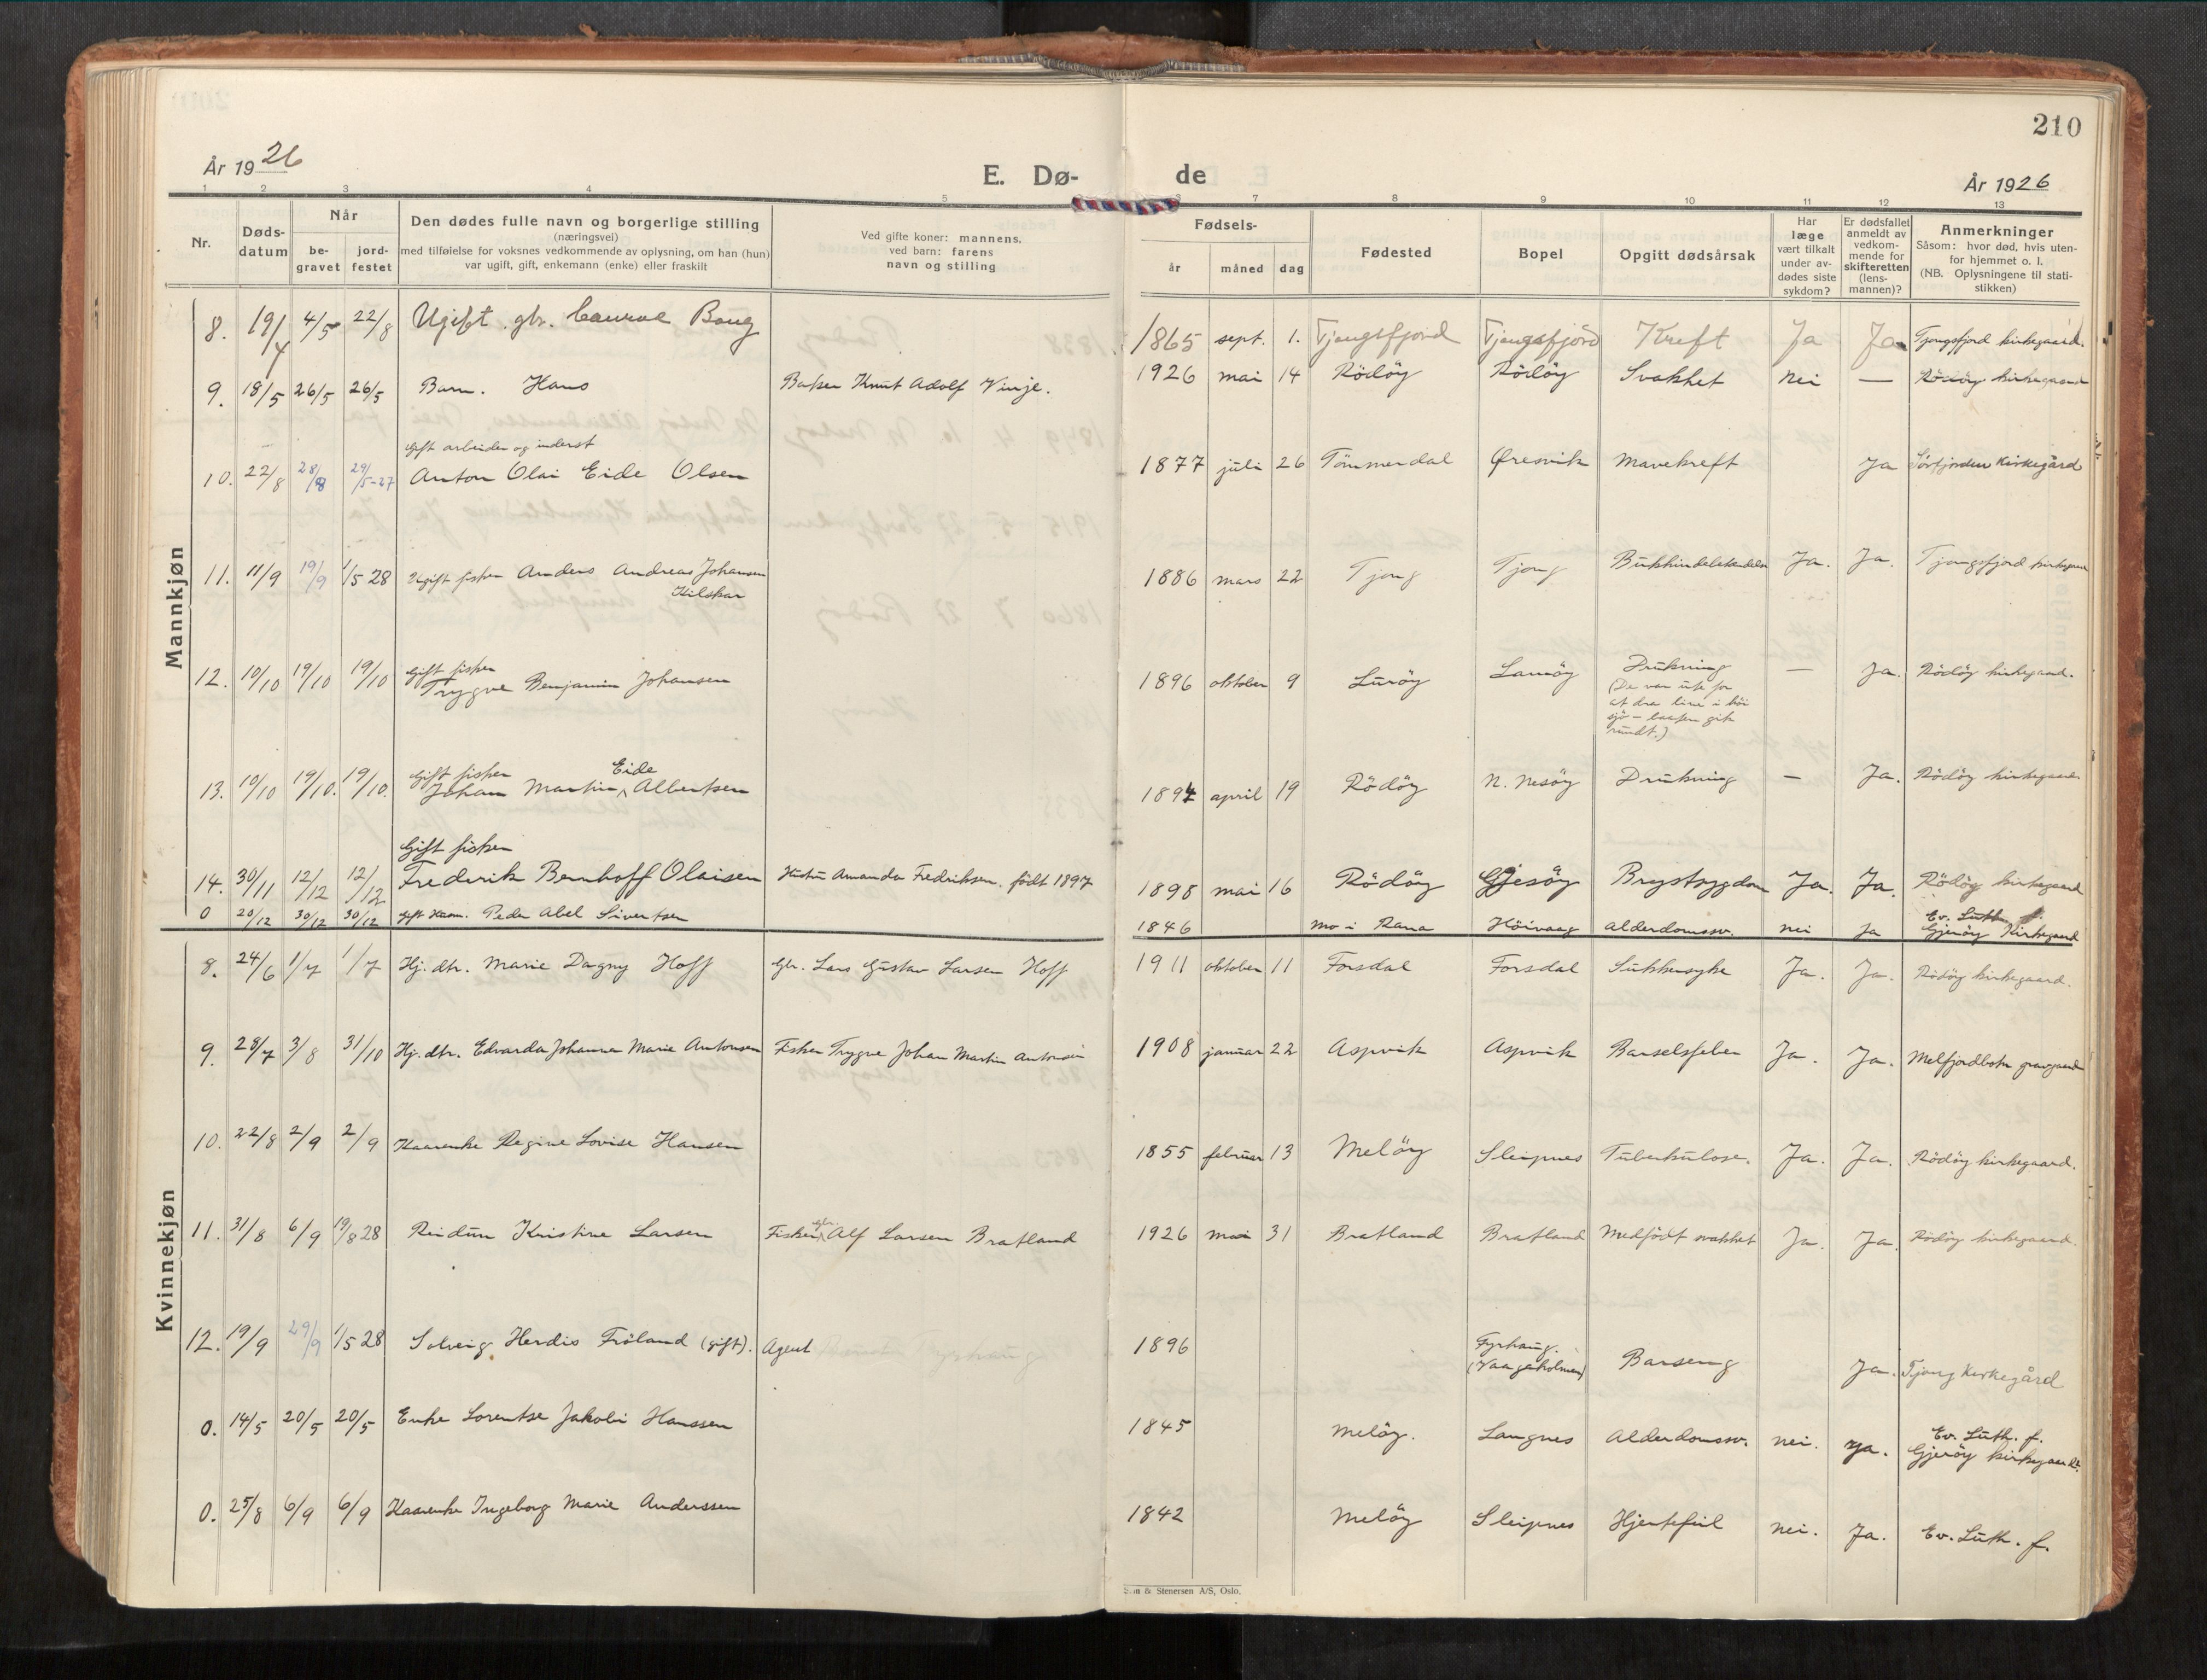 210
År 1926
E. Dø-
de
År 1926
1 2 3 4 5 6 7 8 9 10 11 12 13
Nr.
Døds-
datum
Når
be-
gravet
jord-
festet
Den dødes fulle navn og borgerlige stilling
(næringsvei)
med tilføielse for voksnes vedkommende av oplysning, om han (hun)
var ugift, gift, enkemann (enke) eller fraskilt
Ved gifte koner: mannens,
ved barn: farens
navn og stilling
Fødsels-
år måned dag
Fødested
Bopel
Opgitt dødsårsak
Har
læge
vært tilkalt
under av-
dødes siste
sykdom?
Er dødsfallet
anmeldt av
vedkom-
mende for
skifteretten
(lens-
mannen)?
Anmerkninger
Såsom: hvor død, hvis uten-
for hjemmet o. l.
(NB. Oplysningene til stati-
stikken)
Mannkjøn
8. 19/4 4/5 22/8 Ugift gbr. 1865 sept. 1. Tjongsfjord Tjongsfjord Kreft Ja Ja Tjongsfjord kirkegaard.
9. 18/5 26/5 26/5 Barn. Hans Baker Knut Adolf Vinje. 1926 mai 14 Rödöy Rödöy Svakhet Nei — Rödöy kirkegaard
Gift arbeider og inderst
10. 22/8 28/8 29/5-27 Anton Olai Eide Olsen 1877 juli 26 Tömmerdal Øresvik Mavekreft Ja Sörfjorden Kirkegård
11. 11/9 19/9 1/5 28 Ugift fisker Anders Andreas Johansen 1886 mars 22 Tjong Tjong Ja. Ja. Tjongsfjord kirkegaard
Kilskar
Gift fisker
12. 10/10 19/10 19/10 Trygve Benjamin Johansen 1896 oktober 9 Luröy Drukning — Ja. Rödöy kirkegaard.
(De var ute for
at dra line i höi
sjö – baaten gik
rundt.)
Gift fisker Eide
13. 10/10 19/10. 19/10. Johan Martin Albertsen 1894 april 19 Rödöy N. Nesöy Drukning — Ja. Rödöy kirkegaard
Gift fisker
14. 30/11 12/12 12/12 Frederik Bernhoff Olaisen Hustru Amanda Fredriksen. födt 1897 1898 mai 16 Rödöy Gjesöy Brystsygdom Ja. Ja. Rödöy kirkegaard
0 20/12 30/12 30/12 Gift Kaarm. Peder Abel Sivertsen 1846 Mo i Rana Höivaag Alderdomssv. nei Ja Ev. Luth. f.
Gjeröy Kirkegaard
Kvinnekjøn
8. 24/6 1/7 1/7 Hj. dtr. Marie Dagny Hoff Gbr. Lars Gustav Larsen Hoff 1911 oktober 11 Forsdal Forsdal Sukkersyke Ja. Ja. Rödöy kirkegaard.
9. 28/7 3/8 31/10 Hj. dtr. Edvarda Johanna Marie Antonsen Fisker Trygve Johan Martin Antonsen 1908 januar 22 Aspvik Aspvik Barselsfeber Ja. Ja. Melfjordbotn gravgaard
10. 22/8 2/9 2/9 Kaarenke Regine Lovise Hansen 1855 februar 13 Melöy Sleipnes Tuberkulose. Ja. Ja. Rödöy kirkegaard.
11. 31/8 6/9 19/8 28 Reidun Kristine Larsen Fisker gbr. Alf Larsen Bratland 1926 mai 31 Bratland Bratland Medfödt svakhet Ja. Ja. Rödöy kirkegaard.
12. 19/9 29/9 1/5 28 Solveig Herdis Fröland (gift). Agent 1896 Fyrhaug. Barseng Ja. Tjong Kirkegård
(Vaagaholmen)
0. 14/5 20/5 20/5 Enke Lorentse Jakobi Hanssen 1845 Melöy. Langnes Alderdomssv. nei. ya. Ev. Luth. f.
Gjeröy kirkegaard.
0. 25/8 6/9 6/9 Kaarenke Ingeborg Marie Anderssen 1842 Melöy Sleipnes Hjertefeil nei. Ja. Ev. Luth. f.
& Stenersen A/S, Oslo.